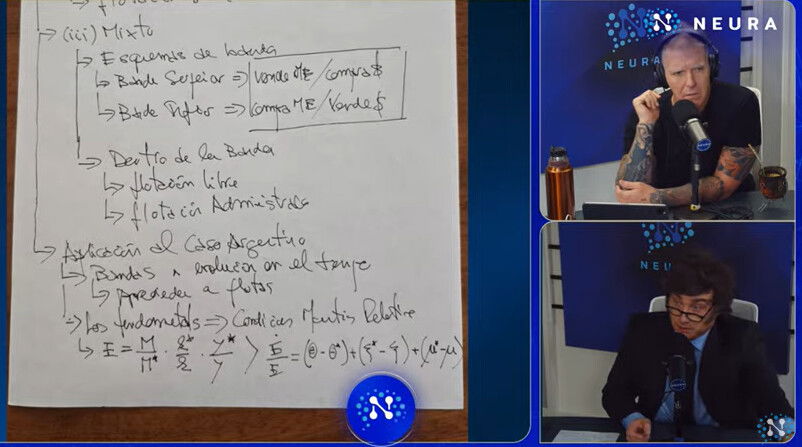 ↳ flotación
→ (iii) Mixto
↳ Esquemas de banda
↳ Banda Superior ⇒ Vende ME/compra $
↳ Banda Inferior ⇒ compra ME/Vende $
↳ Dentro de la Banda
↳ flotación libre
↳ flotación Administrada
↳ Aplicación al Caso Argentino
↳ Bandas evolución en el tiempo
↳ Aprender a flotar
⇒ Los fundamentals ⇒ Monetarias Relativas
↳ E = M/M* · · y*/y > Ė/E = (θ - θ*) + (ξ* - ξ) + (μ* - μ)
NEURA
NEURA
NEU